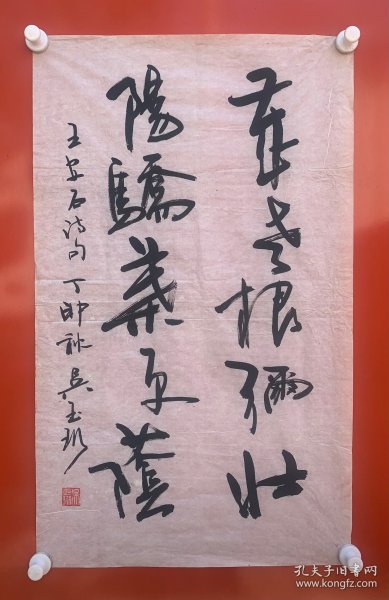 年老根彌壯
陽驕葉更蔭
王安石詩句 丁卯秋 吳玉
孔夫子旧书网
www.kongfz.com